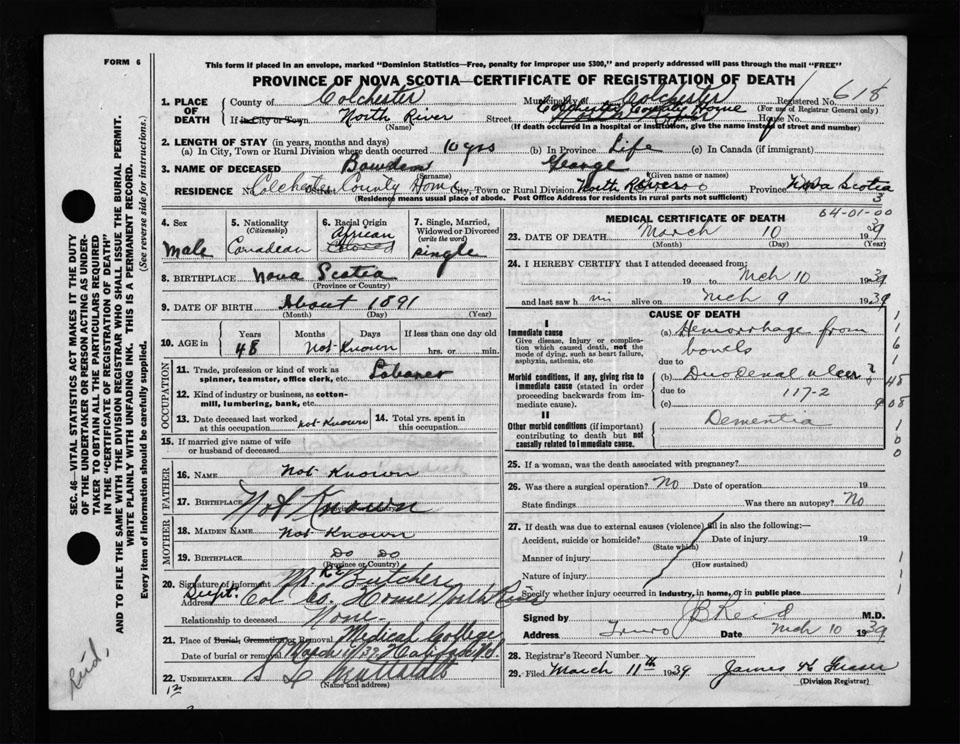 FORM 6
This form if placed in an envelope, marked "Dominion Statistics—Free, penalty for improper use $300," and properly addressed will pass through the mail "FREE"
PROVINCE OF NOVA SCOTIA—CERTIFICATE OF REGISTRATION OF DEATH
1. PLACE OF DEATH
County of Colchester Municipality of Colchester Registered No. 618
(For use of Registrar General only)
Colchester County Home
If in City or Town North River Street House No.
(Name) (If death occurred in a hospital or institution, give the name instead of street and number)
2. LENGTH OF STAY (in years, months and days)
(a) In City, Town or Rural Division where death occurred 10 yrs (b) In Province Life (c) In Canada (if immigrant)
3. NAME OF DECEASED Bowden George
(Surname) (Given name or names)
RESIDENCE No. Colchester County Home City, Town or Rural Division North River Province Nova Scotia
(Residence means usual place of abode. Post Office Address for residents in rural parts not sufficient)
3
4. Sex
Male
5. Nationality
(Citizenship)
Canadian
6. Racial Origin
African
Colored
7. Single, Married, Widowed or Divorced
(write the word)
single
8. BIRTHPLACE Nova Scotia
(Province or Country)
9. DATE OF BIRTH About 1891
(Month) (Day) (Year)
10. AGE in
Years Months Days If less than one day old
48 Not Known hrs. or min.
OCCUPATION
11. Trade, profession or kind of work as spinner, teamster, office clerk, etc. Laborer
12. Kind of industry or business, as cotton-mill, lumbering, bank, etc.
13. Date deceased last worked at this occupation not Known
14. Total yrs. spent in this occupation
15. If married give name of wife or husband of deceased
FATHER
16. NAME Not Known
17. BIRTHPLACE Not Known
(Province or Country)
MOTHER
18. MAIDEN NAME Not Known
19. BIRTHPLACE Do Do
(Province or Country)
20. Signature of informant M. R. Butcher
Supt.
Address Col Co. Home North River
Relationship to deceased None
21. Place of Burial, Cremation or Removal Medical College
Date of burial or removal March 11/39 Halifax N.S.
22. UNDERTAKER
(Name and address)
MEDICAL CERTIFICATE OF DEATH
64-01-00
23. DATE OF DEATH March 10 1939
(Month) (Day) (Year)
24. I HEREBY CERTIFY that I attended deceased from:
19 to Mch 10 1939
and last saw h im alive on Mch 9 1939
CAUSE OF DEATH
I
Immediate cause
Give disease, injury or complication which caused death, not the mode of dying, such as heart failure, asphyxia, asthenia, etc
(a) Hemorrhage from bowels
due to
Morbid conditions, if any, giving rise to immediate cause (stated in order proceeding backwards from immediate cause).
(b) Duodenal ulcer ?
due to 117-2
(c)
II
Other morbid conditions (if important) contributing to death but not causally related to immediate cause.
Dementia
1
1
6
1
48
08
1
0
0
25. If a woman, was the death associated with pregnancy?
26. Was there a surgical operation? No Date of operation 19
State findings Was there an autopsy? No
27. If death was due to external causes (violence) fill in also the following:—
Accident, suicide or homicide? Date of injury 19
(State which)
Manner of injury
(How sustained)
Nature of injury
Specify whether injury occurred in industry, in home, or in public place
1
1
1
Signed by J B Reid M.D.
Address Truro Date Mch 10 1939
28. Registrar's Record Number
29. Filed March 11th 1939 James H Fraser
(Division Registrar)
SEC. 46—VITAL STATISTICS ACT MAKES IT THE DUTY OF THE UNDERTAKER OR PERSON ACTING AS UNDERTAKER TO OBTAIN ALL THE PARTICULARS REQUIRED IN THE "CERTIFICATE OF REGISTRATION OF DEATH"
AND TO FILE THE SAME WITH THE DIVISION REGISTRAR WHO SHALL ISSUE THE BURIAL PERMIT.
WRITE PLAINLY WITH UNFADING INK. THIS IS A PERMANENT RECORD.
Every item of information should be carefully supplied. (See reverse side for instructions.)